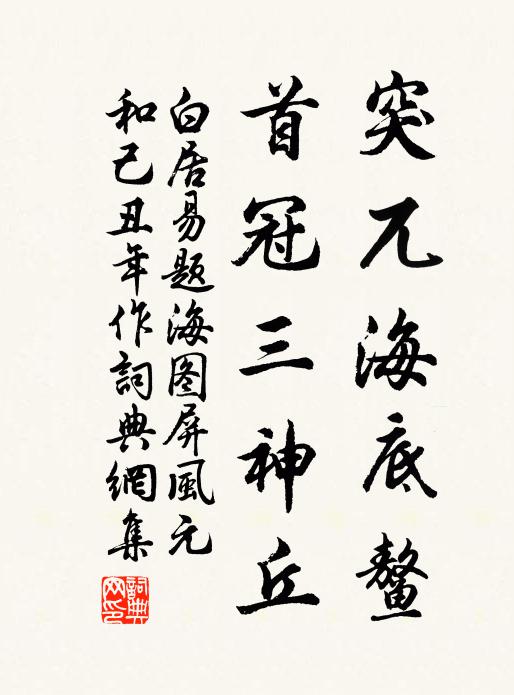 突兀海底鳌
首冠三神丘
白居易题海图屏风元
和己丑年作詞典網集
詞典
网印